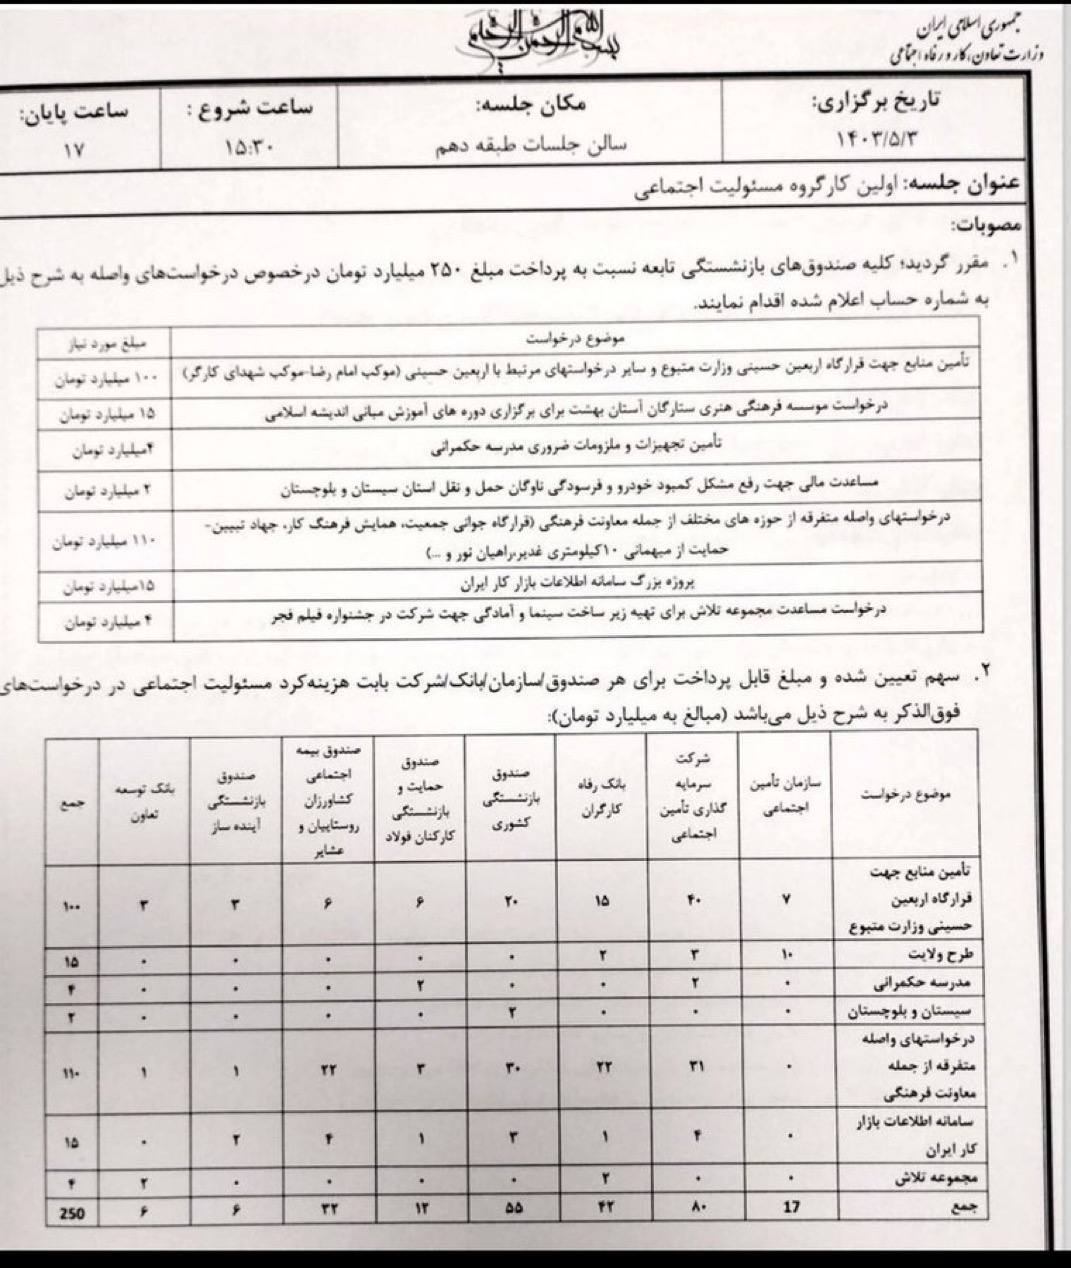 بسم الله الرحمن الرحیم
جمهوری اسلامی ایران
وزارت تعاون، کار و رفاه اجتماعی
تاریخ برگزاری: مکان جلسه: ساعت شروع : ساعت پایان:
۱۴۰۳/۵/۳ سالن جلسات طبقه دهم ۱۵:۳۰ ۱۷
عنوان جلسه: اولین کارگروه مسئولیت اجتماعی
مصوبات:
۱. مقرر گردید؛ کلیه صندوق‌های بازنشستگی تابعه نسبت به پرداخت مبلغ ۲۵۰ میلیارد تومان درخصوص درخواست‌های واصله به شرح ذیل
به شماره حساب اعلام شده اقدام نمایند.
موضوع درخواست مبلغ مورد نیاز
تأمین منابع جهت قرارگاه اربعین حسینی وزارت متبوع و سایر درخواستهای مرتبط با اربعین حسینی (موکب امام رضا-موکب شهدای کارگر) ۱۰۰ میلیارد تومان
درخواست موسسه فرهنگی هنری ستارگان آستان بهشت برای برگزاری دوره های آموزش مبانی اندیشه اسلامی ۱۵ میلیارد تومان
تأمین تجهیزات و ملزومات ضروری مدرسه حکمرانی ۴میلیارد تومان
مساعدت مالی جهت رفع مشکل کمبود خودرو و فرسودگی ناوگان حمل و نقل استان سیستان و بلوچستان ۲ میلیارد تومان
درخواستهای واصله متفرقه از حوزه های مختلف از جمله معاونت فرهنگی (قرارگاه جوانی جمعیت، همایش فرهنگ کار، جهاد تبیین-
حمایت از میهمانی ۱۰کیلومتری غدیر،راهیان نور و ...) ۱۱۰ میلیارد تومان
پروژه بزرگ سامانه اطلاعات بازار کار ایران ۱۵میلیارد تومان
درخواست مساعدت مجموعه تلاش برای تهیه زیر ساخت سینما و آمادگی جهت شرکت در جشنواره فیلم فجر ۴ میلیارد تومان
۲. سهم تعیین شده و مبلغ قابل پرداخت برای هر صندوق/سازمان/بانک/شرکت بابت هزینه‌کرد مسئولیت اجتماعی در درخواست‌های
فوق‌الذکر به شرح ذیل می‌باشد (مبالغ به میلیارد تومان):
موضوع درخواست
سازمان تأمین
اجتماعی
شرکت
سرمایه
گذاری تأمین
اجتماعی
بانک رفاه
کارگران
صندوق
بازنشستگی
کشوری
صندوق
حمایت و
بازنشستگی
کارکنان فولاد
صندوق بیمه
اجتماعی
کشاورزان
روستاییان و
عشایر
صندوق
بازنشستگی
آینده ساز
بانک توسعه
تعاون
جمع
تأمین منابع جهت
قرارگاه اربعین
حسینی وزارت متبوع
۷ ۴۰ ۱۵ ۲۰ ۶ ۶ ۳ ۳ ۱۰۰
طرح ولایت ۱۰ ۳ ۲ ۰ ۰ ۰ ۰ ۰ ۱۵
مدرسه حکمرانی ۰ ۲ ۰ ۰ ۲ ۰ ۰ ۰ ۴
سیستان و بلوچستان ۰ ۰ ۰ ۲ ۰ ۰ ۰ ۰ ۲
درخواستهای واصله
متفرقه از جمله
معاونت فرهنگی
۰ ۳۱ ۲۲ ۳۰ ۳ ۲۲ ۱ ۱ ۱۱۰
سامانه اطلاعات بازار
کار ایران
۰ ۴ ۱ ۳ ۱ ۴ ۲ ۰ ۱۵
مجموعه تلاش ۰ ۰ ۲ ۰ ۰ ۰ ۰ ۲ ۴
جمع 17 ۸۰ ۴۲ ۵۵ ۱۲ ۳۲ ۶ ۶ 250